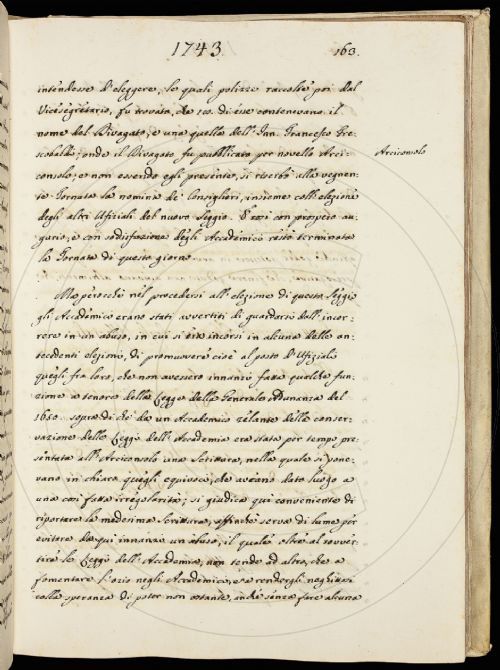 1743.
163.
intendesse d'eleggere, le quali polizze raccolte poi dal
Vicesegretario, fu trovato, che 10. di esse contenevano il
nome del Rivagato; e una quella dell' Inn. Francesco Fre-
scobaldi; onde il Rivagato fu pubblicato per novello Arci-
consolo; e non essendo egli presente, si riserbò alla vegnen-
te Tornata la nomina de' Consiglieri, insieme coll' elezione
degli altri Ufiziali del nuovo Seggio. E così con prospero au-
gurio, e con sodisfazione degli Accademici restò terminata
la Tornata di questo giorno.
Arciconsolo
Ma perocchè nel procedersi all' elezione di questo Seggio
gli Accademici erano stati avvertiti di guardarsi dall' incor-
rere in un abuso, in cui si era incorsi in alcuna delle an-
tecedenti elezioni, di promuovere cioè al posto d' Ufiziale
quegli fra loro, che non avessero innanzi fatta qualche fun-
zione a tenore della Legge della Generale Adunanza del
1650. sopra di che da un Accademico zelante della conser-
vazione delle Leggi dell' Accademia era stata per tempo pre-
sentata all' Arciconsolo una Scrittura, nella quale si pone-
vano in chiaro quegli equivoci, che aveano dato luogo a
una così fatta irregolarità; si giudica qui conveniente di
riportare la medesima Scrittura, affinchè serva di lume per
evitare da qui innanzi un abuso, il quale oltre al sovver-
tire le Leggi dell' Accademia, non tende ad altro, che a
fomentare l' ozio negli Accademici, e a rendergli neghittosi
colla speranza di poter non ostante, anche senza fare alcuna